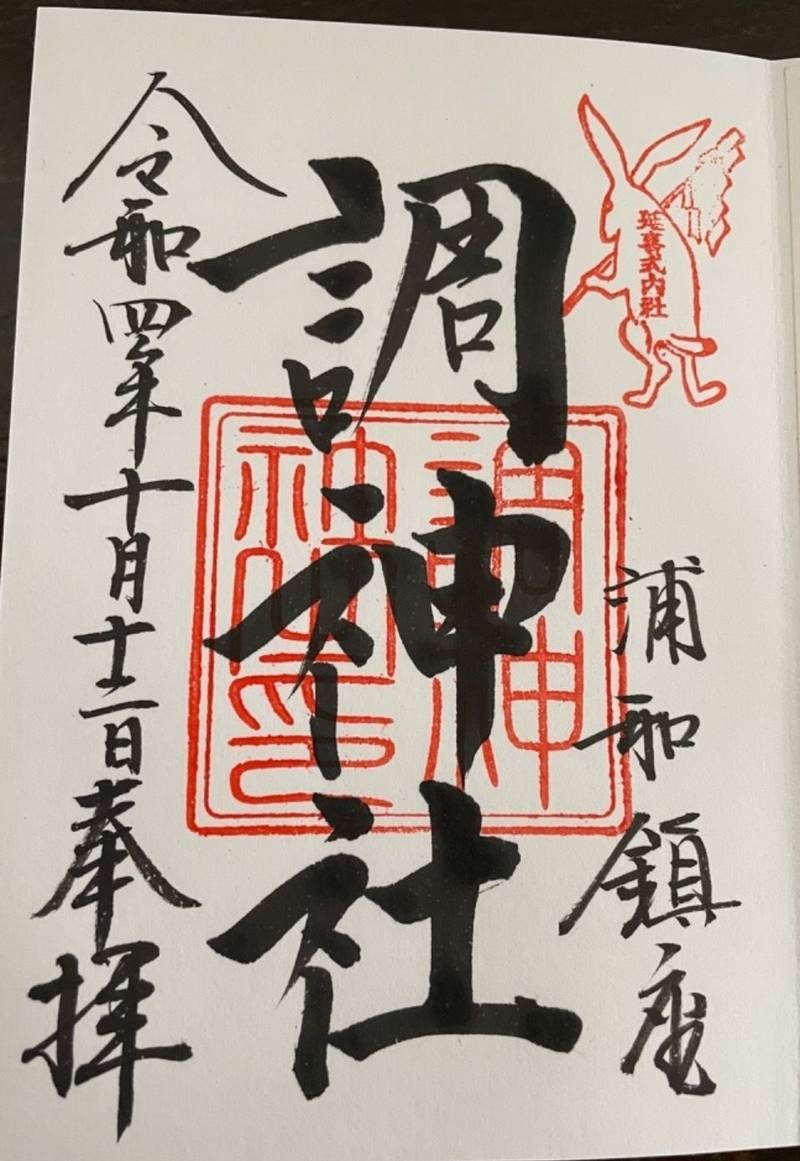 延喜式内社
浦和鎮座
調神社
調神
社之印
令和四年十月十二日奉拝